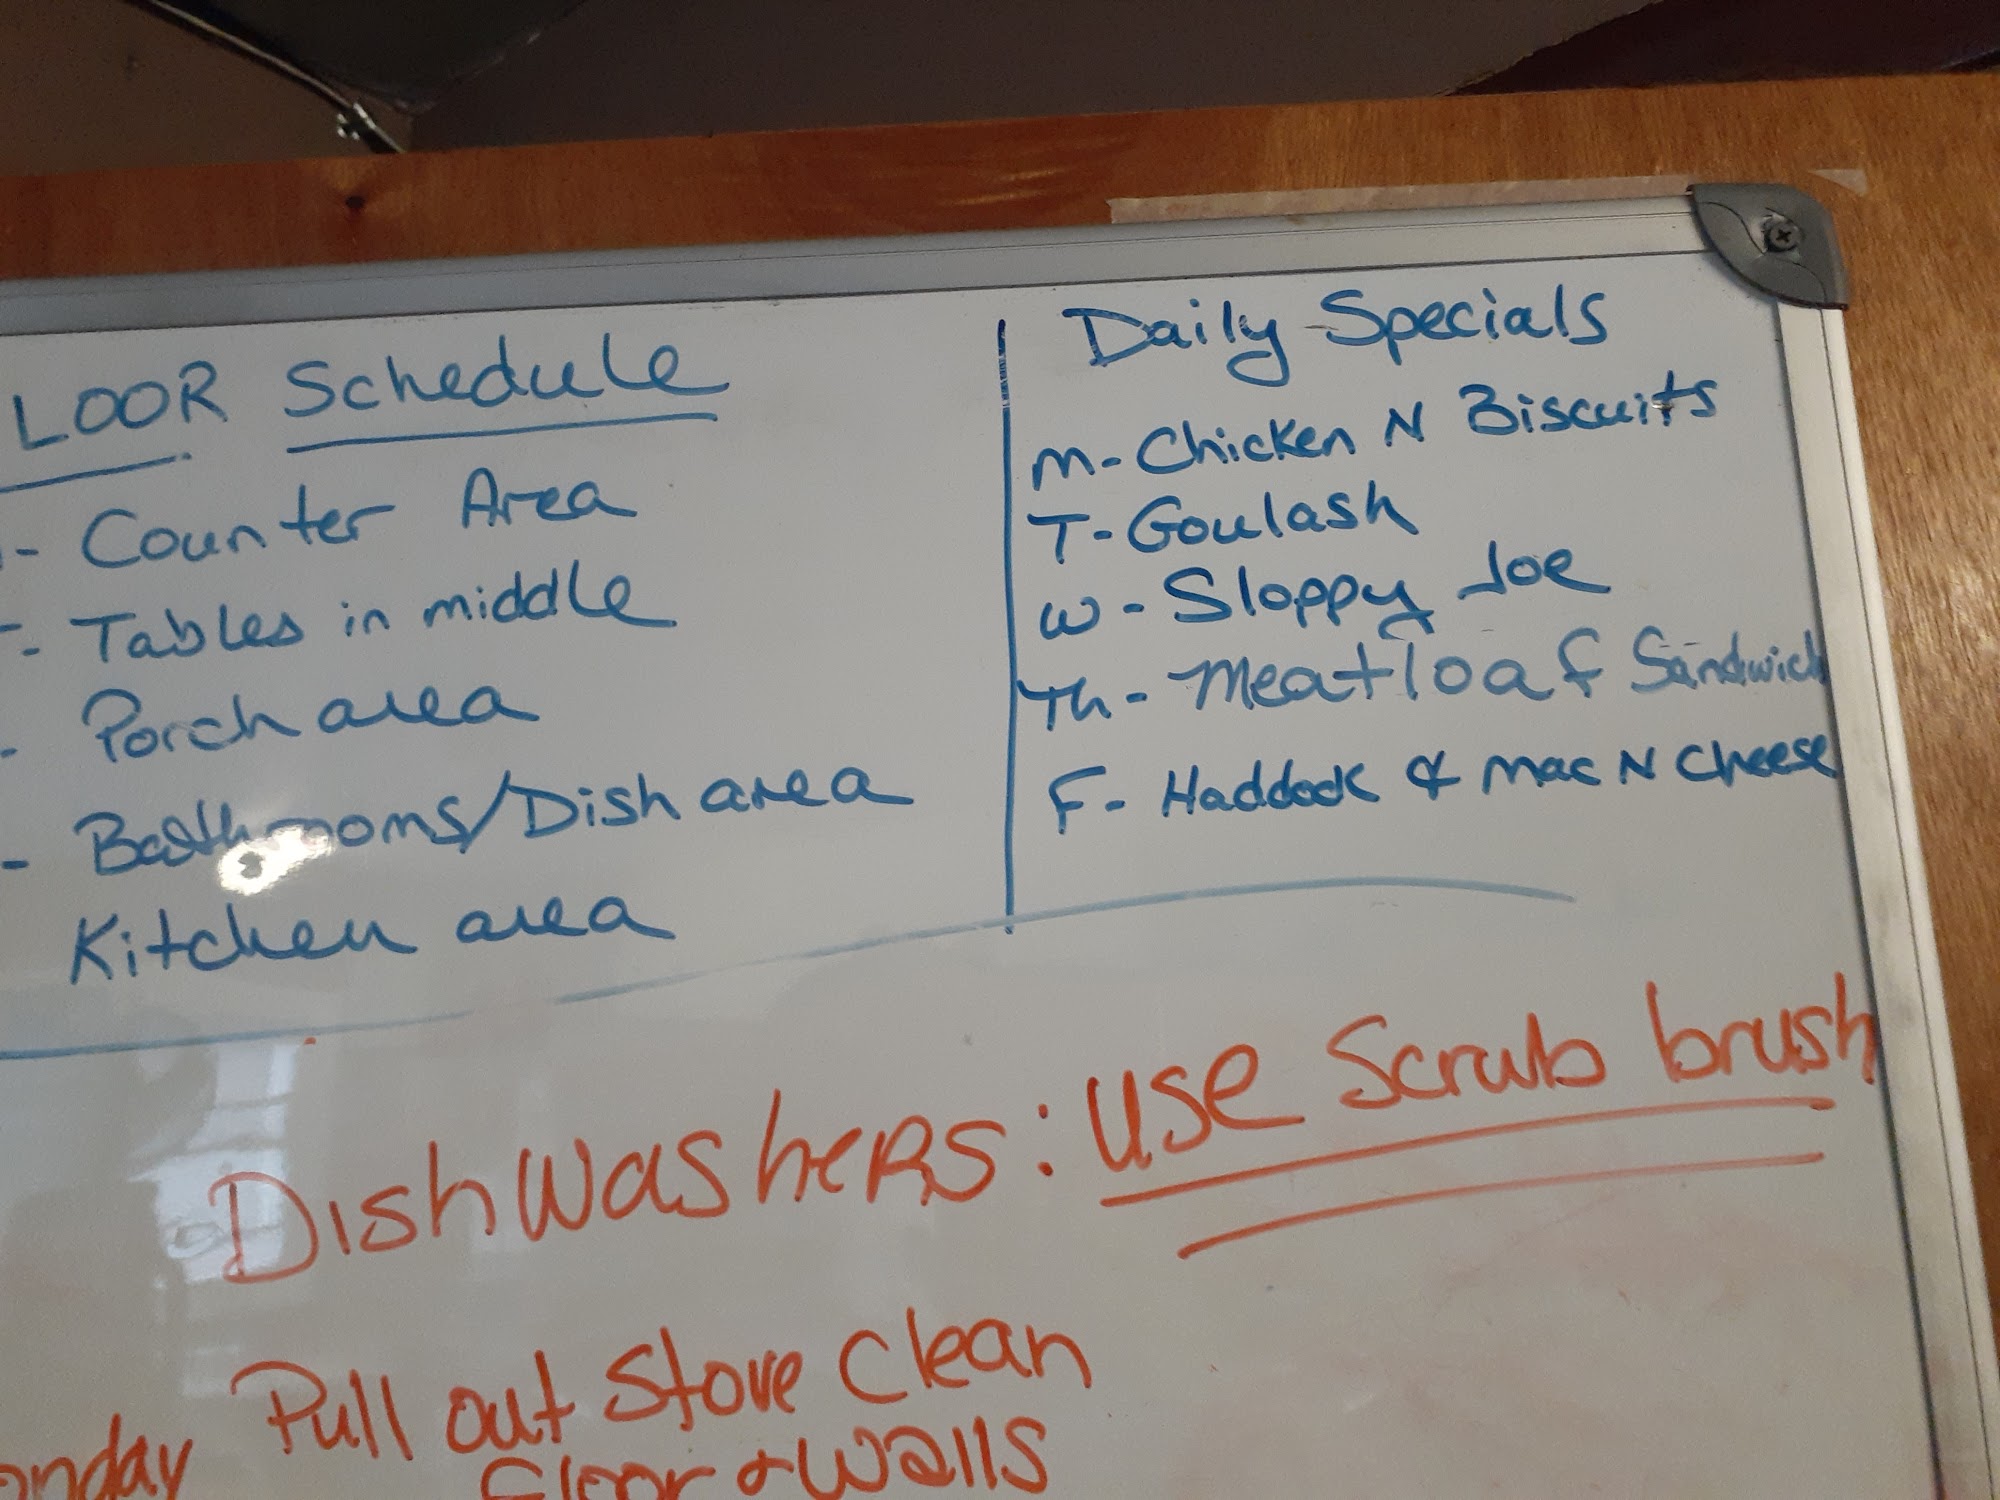 LOOR Schedule
- Counter Area
- Tables in middle
- Porch area
- Bathrooms/Dish area
Kitchen area
Daily Specials
M- Chicken N Biscuits
T- Goulash
W - Sloppy Joe
Th - Meatloaf Sandwich
F - Haddock & Mac N Cheese
DishWasheRs: Use Scrub brush
Pull out Stove Clean
onday
Floor & Walls